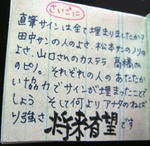 さいごに
直筆サインは全て埋まりましたか？
田中サンの人のよさ、松本サンのノリの
よさ、山口さんのカステラ、高橋さん
のピノ。それぞれの人のあたたか
い協力でサインが埋まったことで
しょう そして何よりアナタのねばり
り強さ 将来有望です